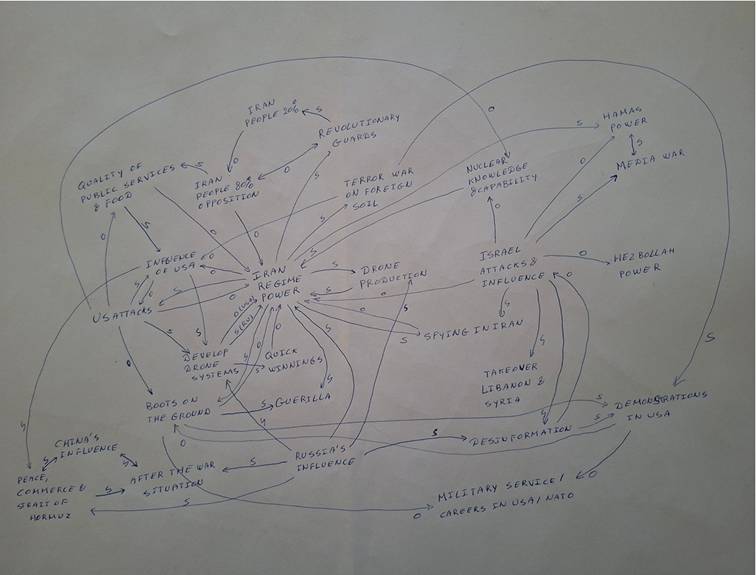 IRAN
PEOPLE 20%
REVOLUTIONARY
GUARDS
HAMAS
POWER
MEDIA WAR
QUALITY OF
PUBLIC SERVICES
& FOOD
IRAN
PEOPLE 80%
OPPOSITION
TERROR WAR
ON FOREIGN
SOIL
NUCLEAR
KNOWLEDGE
& CAPABILITY
INFLUENCE
OF USA
IRAN
REGIME
POWER
DRONE
PRODUCTION
ISRAEL
ATTACKS &
INFLUENCE
HEZBOLLAH
POWER
US ATTACKS
SPYING IN IRAN
DEVELOP
DRONE
SYSTEMS
QUICK
WINNINGS
TAKEOVER
LIBANON &
SYRIA
BOOTS ON
THE GROUND
GUERILLA
DEMONSTRATIONS
IN USA
DESINFORMATION
CHINA'S
INFLUENCE
PEACE,
COMMERCE &
STRAIT OF
HORMUZ
AFTER THE WAR
SITUATION
RUSSIA'S
INFLUENCE
MILITARY SERVICE/
CAREERS IN USA/NATO